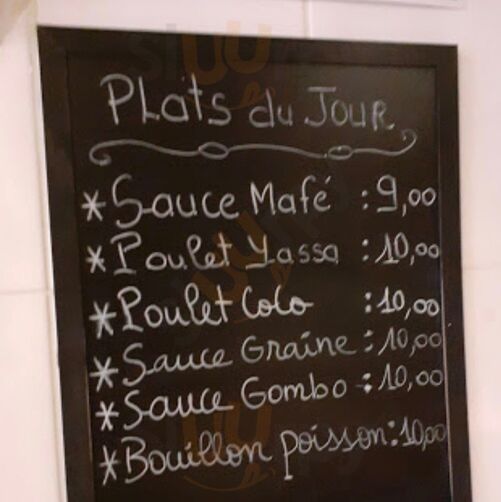 PLats du JOUR
* Sauce Mafé : 9,00
* Poulet Yassa : 10,00
* Poulet Colo : 10,00
* Sauce Graine : 10,00
* Sauce Gombo : 10,00
* Bouillon poisson : 10,00